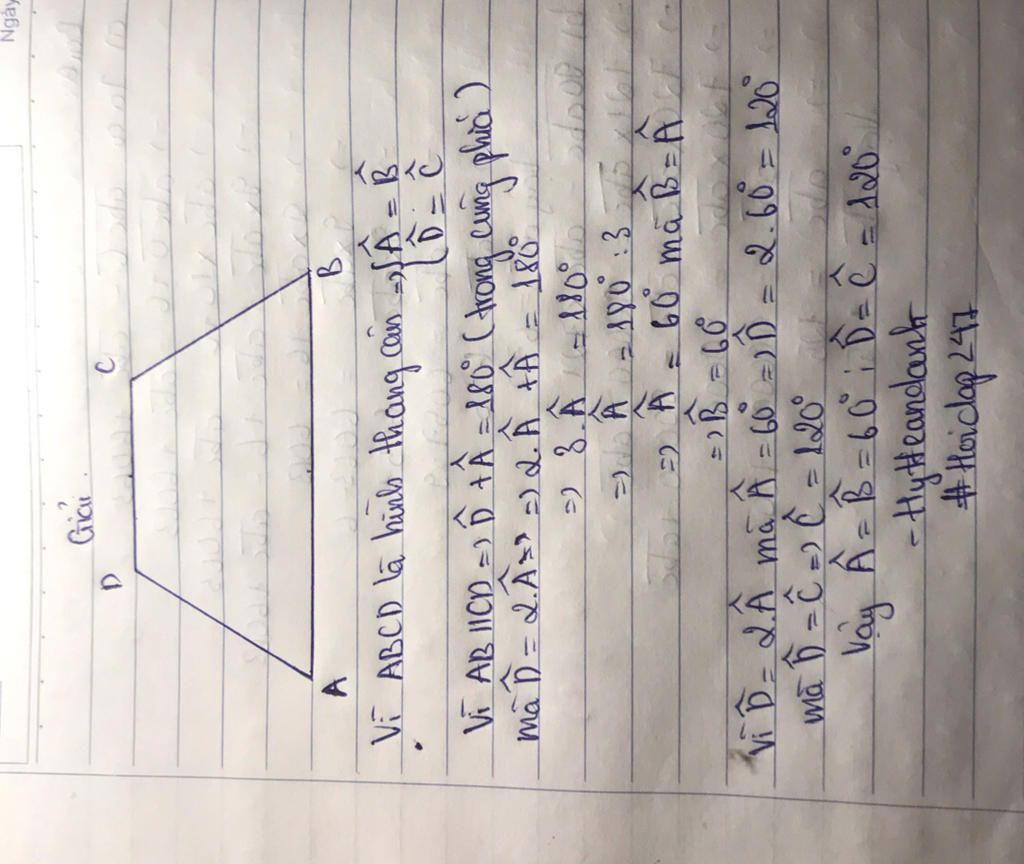 Ngày
Giải.
D C
A B
Vì ABCD là hình thang cân => { Â = B̂
{ D̂ = Ĉ
Vì AB // CD => D̂ + Â = 180° (trong cùng phía)
mà D̂ = 2.Â => => 2.Â + Â = 180°
=> 3.Â = 180°
=> Â = 180° : 3
=> Â = 60° mà B̂ = Â
=> B̂ = 60°
Vì D̂ = 2.Â mà Â = 60° => D̂ = 2.60° = 120°
mà D̂ = Ĉ => Ĉ = 120°
Vậy Â = B̂ = 60° ; D̂ = Ĉ = 120°
#Hoidap247